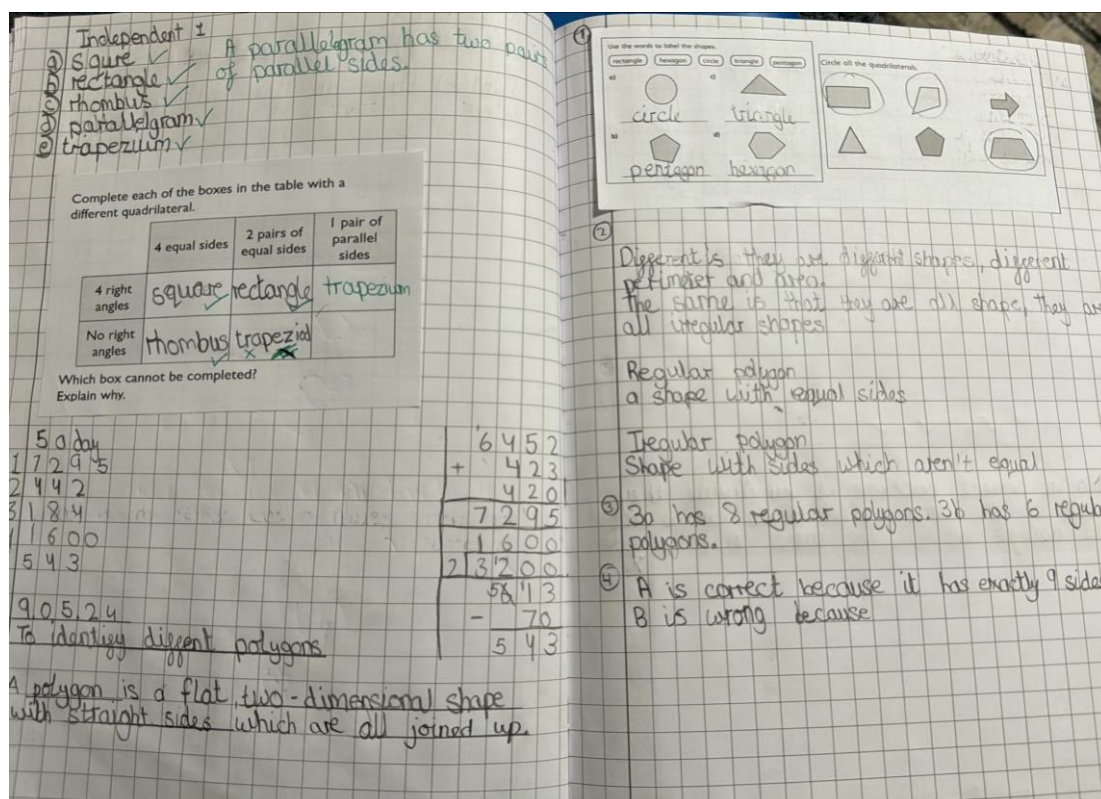 Independent 1
a) squre
b) rectangle
c) rhombus
d) parallelgram
e) trapezium
A parallelogram has two pairs
of parallel sides.
Complete each of the boxes in the table with a
different quadrilateral.
4 equal sides
2 pairs of
equal sides
1 pair of
parallel
sides
4 right
angles
square
rectangle
trapezium
No right
angles
rhombus
trapeziod
Which box cannot be completed?
Explain why.
5 a day
1 7295
2 442
3 184
1600
543
6452
+ 423
420
7295
1600
2 3200
613
- 70
543
9.05.24
To identify diffent polygons
A polygon is a flat, two-dimensional shape
with straight sides which are all joined up.
1
Use the words to label the shapes.
rectangle hexagon circle triangle pentagon
a)
c)
circle
triangle
b)
d)
pentagon
hexagon
Circle all the quadrilaterals.
2
Different is they are different shapes, different
perimeter and area.
The same is that they are all shape, they are
all irregular shapes
Regular polygon
a shape with equal sides
Iregular polygon
Shape with sides which aren't equal
3 3a has 8 regular polygons. 3b has 6 regular
polygons.
4 A is correct because it has exactly 9 sides
B is wrong because